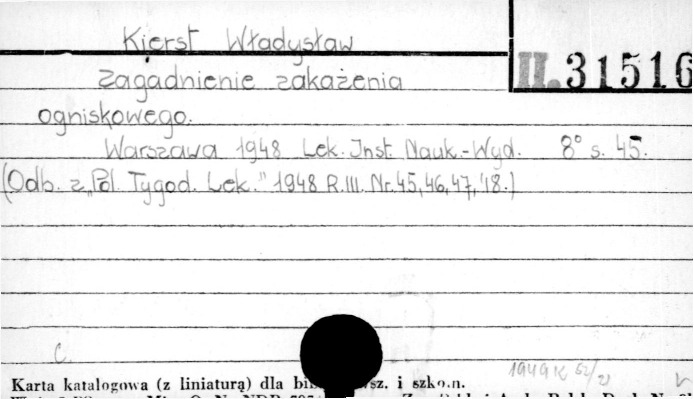 Kierst Władysław
II. 31516
Zagadnienie zakażenia
ogniskowego.
Warszawa 1948 Lek. Inst. Nauk.-Wyd. 8° s. 45.
(Odb. z „Pol. Tygod. Lek." 1948 R.III. Nr.45,46,47,'18.)
C.
1949 K 52/21
Karta katalogowa (z liniaturą) dla sz. i szko.n.